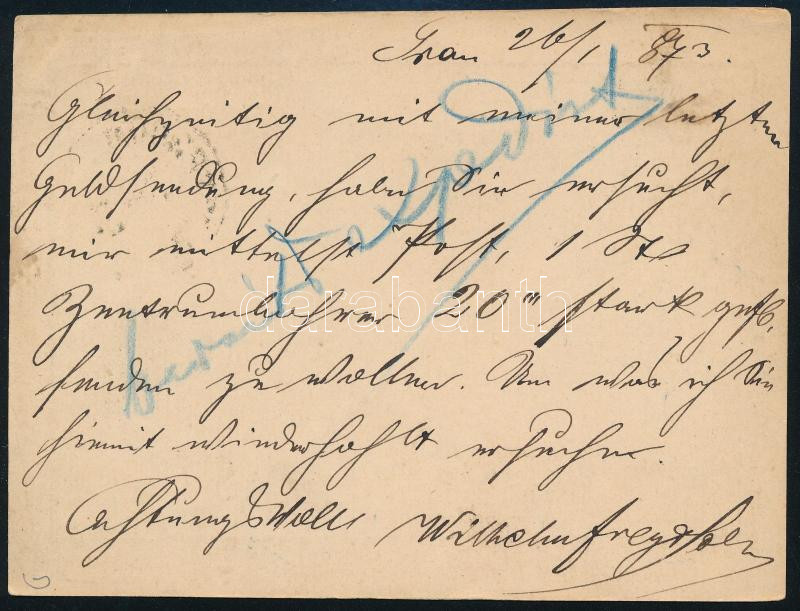 Gran 26/1 873.
Gleichzeitig mit meiner letzten
Geldsendung, habe Sie ersucht,
mir mittelst Post, 1 St
Zentrumbohrer 20''' stark gefl.
senden zu wollen. Um was ich Sie
hiemit wiederhohlt ersuche.
Achtungsvoll
Wilhelm
bereits expedirt
darabanth